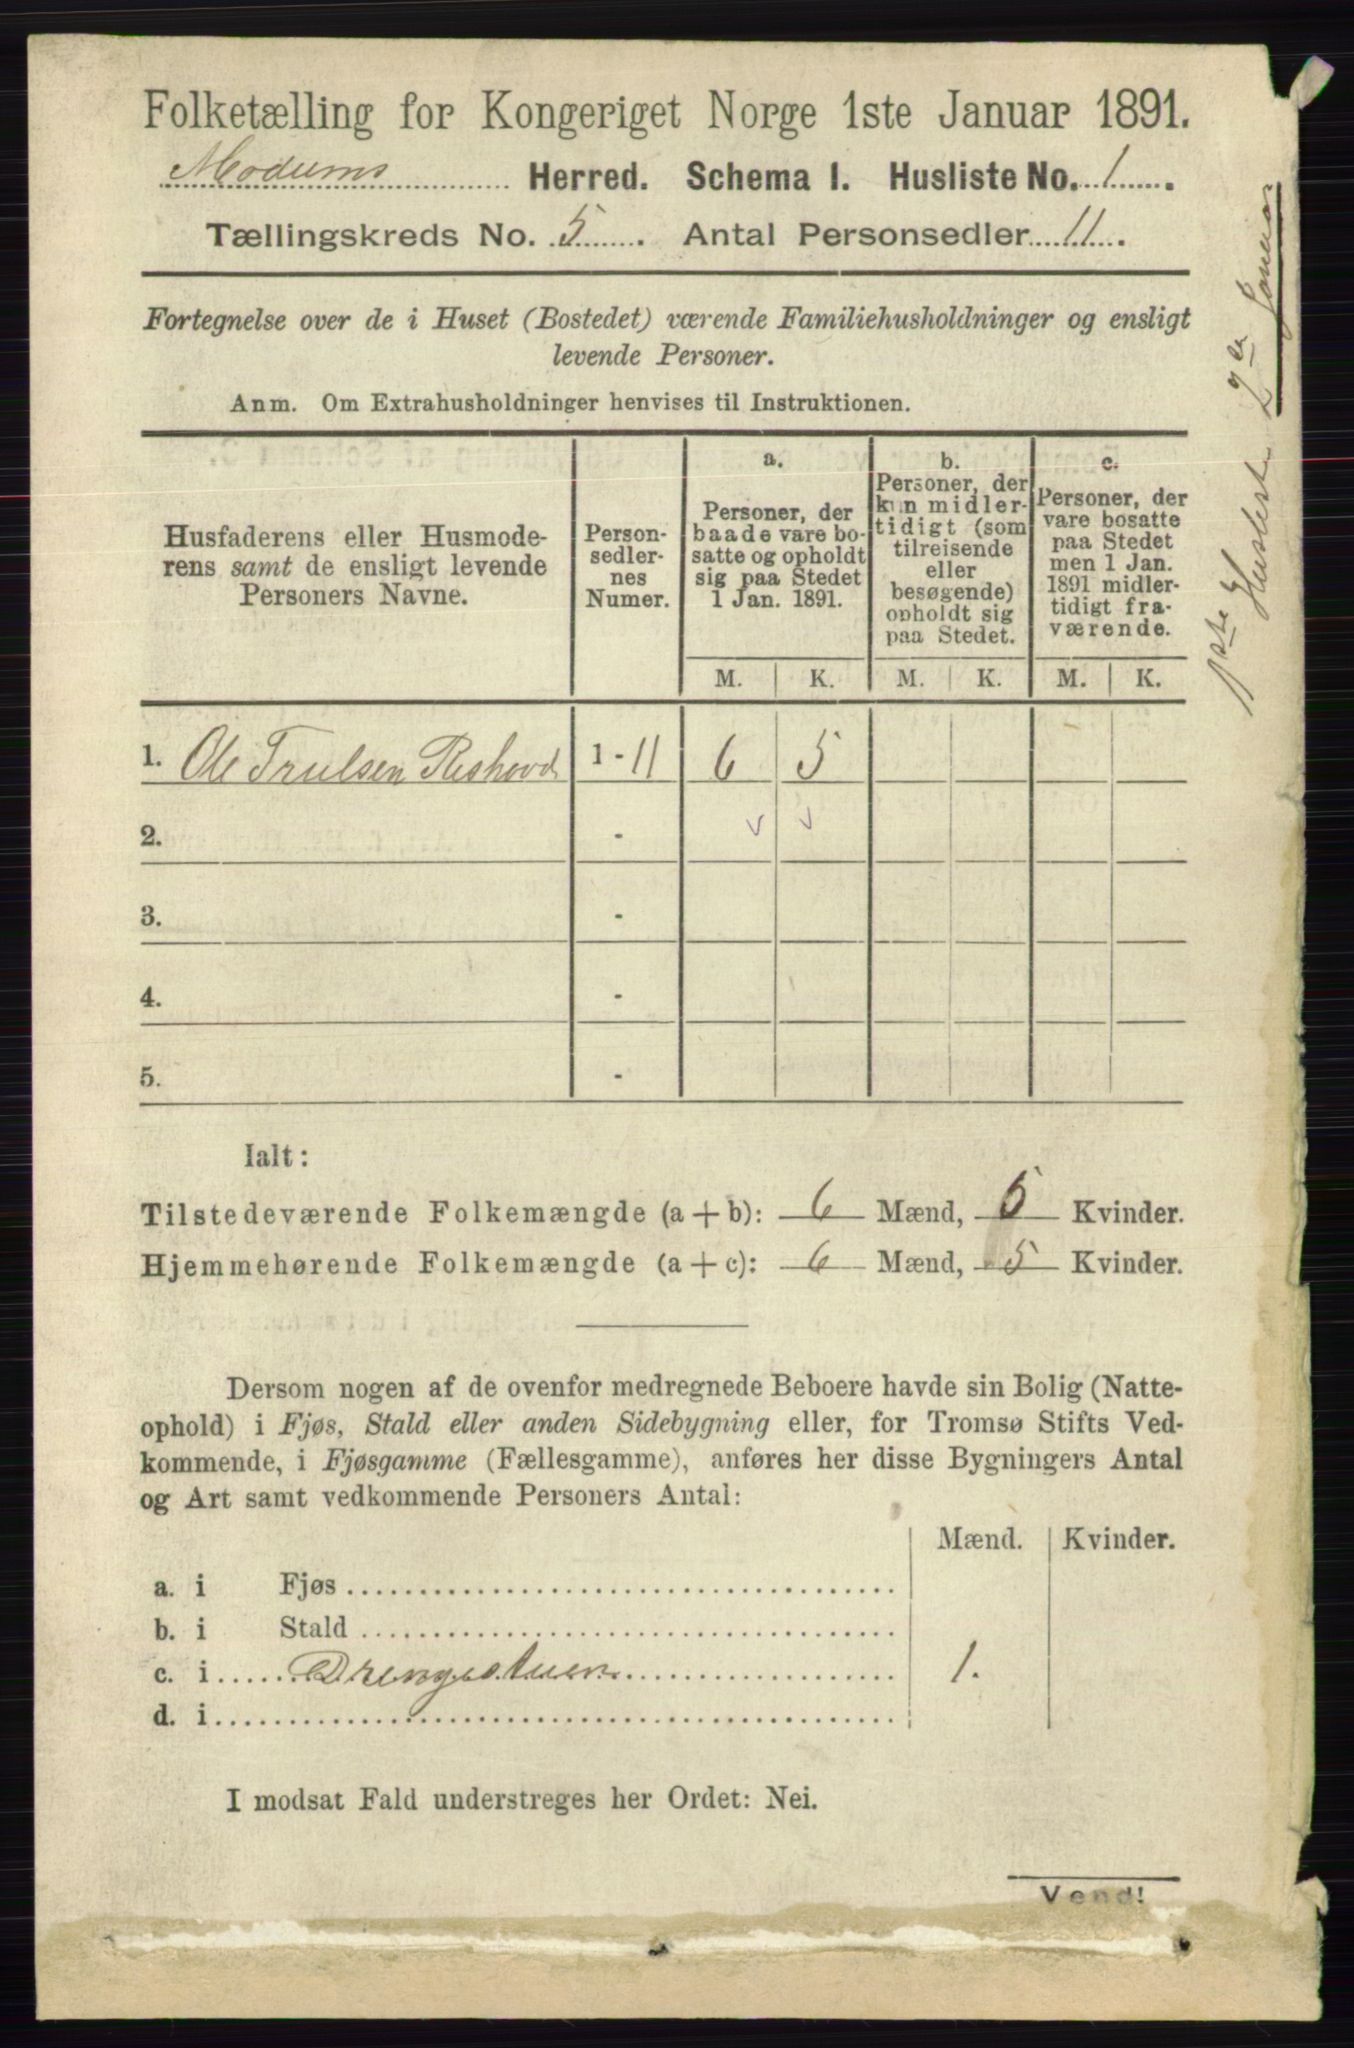 Folketælling for Kongeriget Norge 1ste Januar 1891.
Modums Herred. Schema 1. Husliste No. 1.
Tællingskreds No. 5. Antal Personsedler 11.
Fortegnelse over de i Huset (Bostedet) værende Familiehusholdninger og ensligt
levende Personer.
Anm. Om Extrahusholdninger henvises til Instruktionen.
Husfaderens eller Husmode-
rens samt de ensligt levende
Personers Navne.
Person-
sedler-
nes
Numer.
a.
Personer, der
baade vare bo-
satte og opholdt
sig paa Stedet
1 Jan. 1891.
b.
Personer, der
kun midler-
tidigt (som
tilreisende
eller
besøgende)
opholdt sig
paa Stedet.
c.
Personer, der
vare bosatte
paa Stedet
men 1 Jan.
1891 midler-
tidigt fra-
værende.
M. K. M. K. M. K.
1. Ole Trulsen 1 - 11 6 5
2. -
3. -
4. -
5. -
Ialt:
Tilstedeværende Folkemængde (a + b): 6 Mænd, 5 Kvinder.
Hjemmehørende Folkemængde (a + c): 6 Mænd, 5 Kvinder.
Dersom nogen af de ovenfor medregnede Beboere havde sin Bolig (Natte-
ophold) i Fjøs, Stald eller anden Sidebygning eller, for Tromsø Stifts Ved-
kommende, i Fjøsgamme (Fællesgamme), anføres her disse Bygningers Antal
og Art samt vedkommende Personers Antal:
Mænd. Kvinder.
a. i Fjøs
b. i Stald
c. i Drengestuen 1.
d. i
I modsat Fald understreges her Ordet: Nei.
Vend!
1ste Husliste 2en Januar